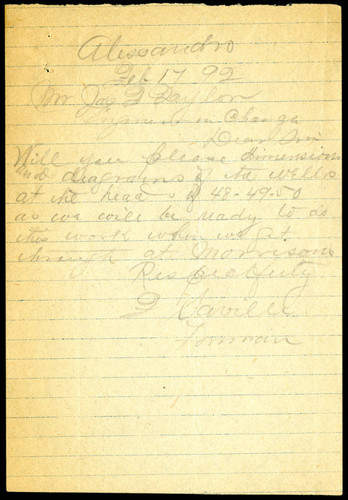 Alessandro
Feb 17 92
Mr Jas T Taylor
Engineer in Charge
Dear Sir
Will you Please Dimensions
and diagrams of the wells
at the head of 48-49-50
as we will be ready to do
this work when we get
through at Morrisons
Respectfuly
Forman